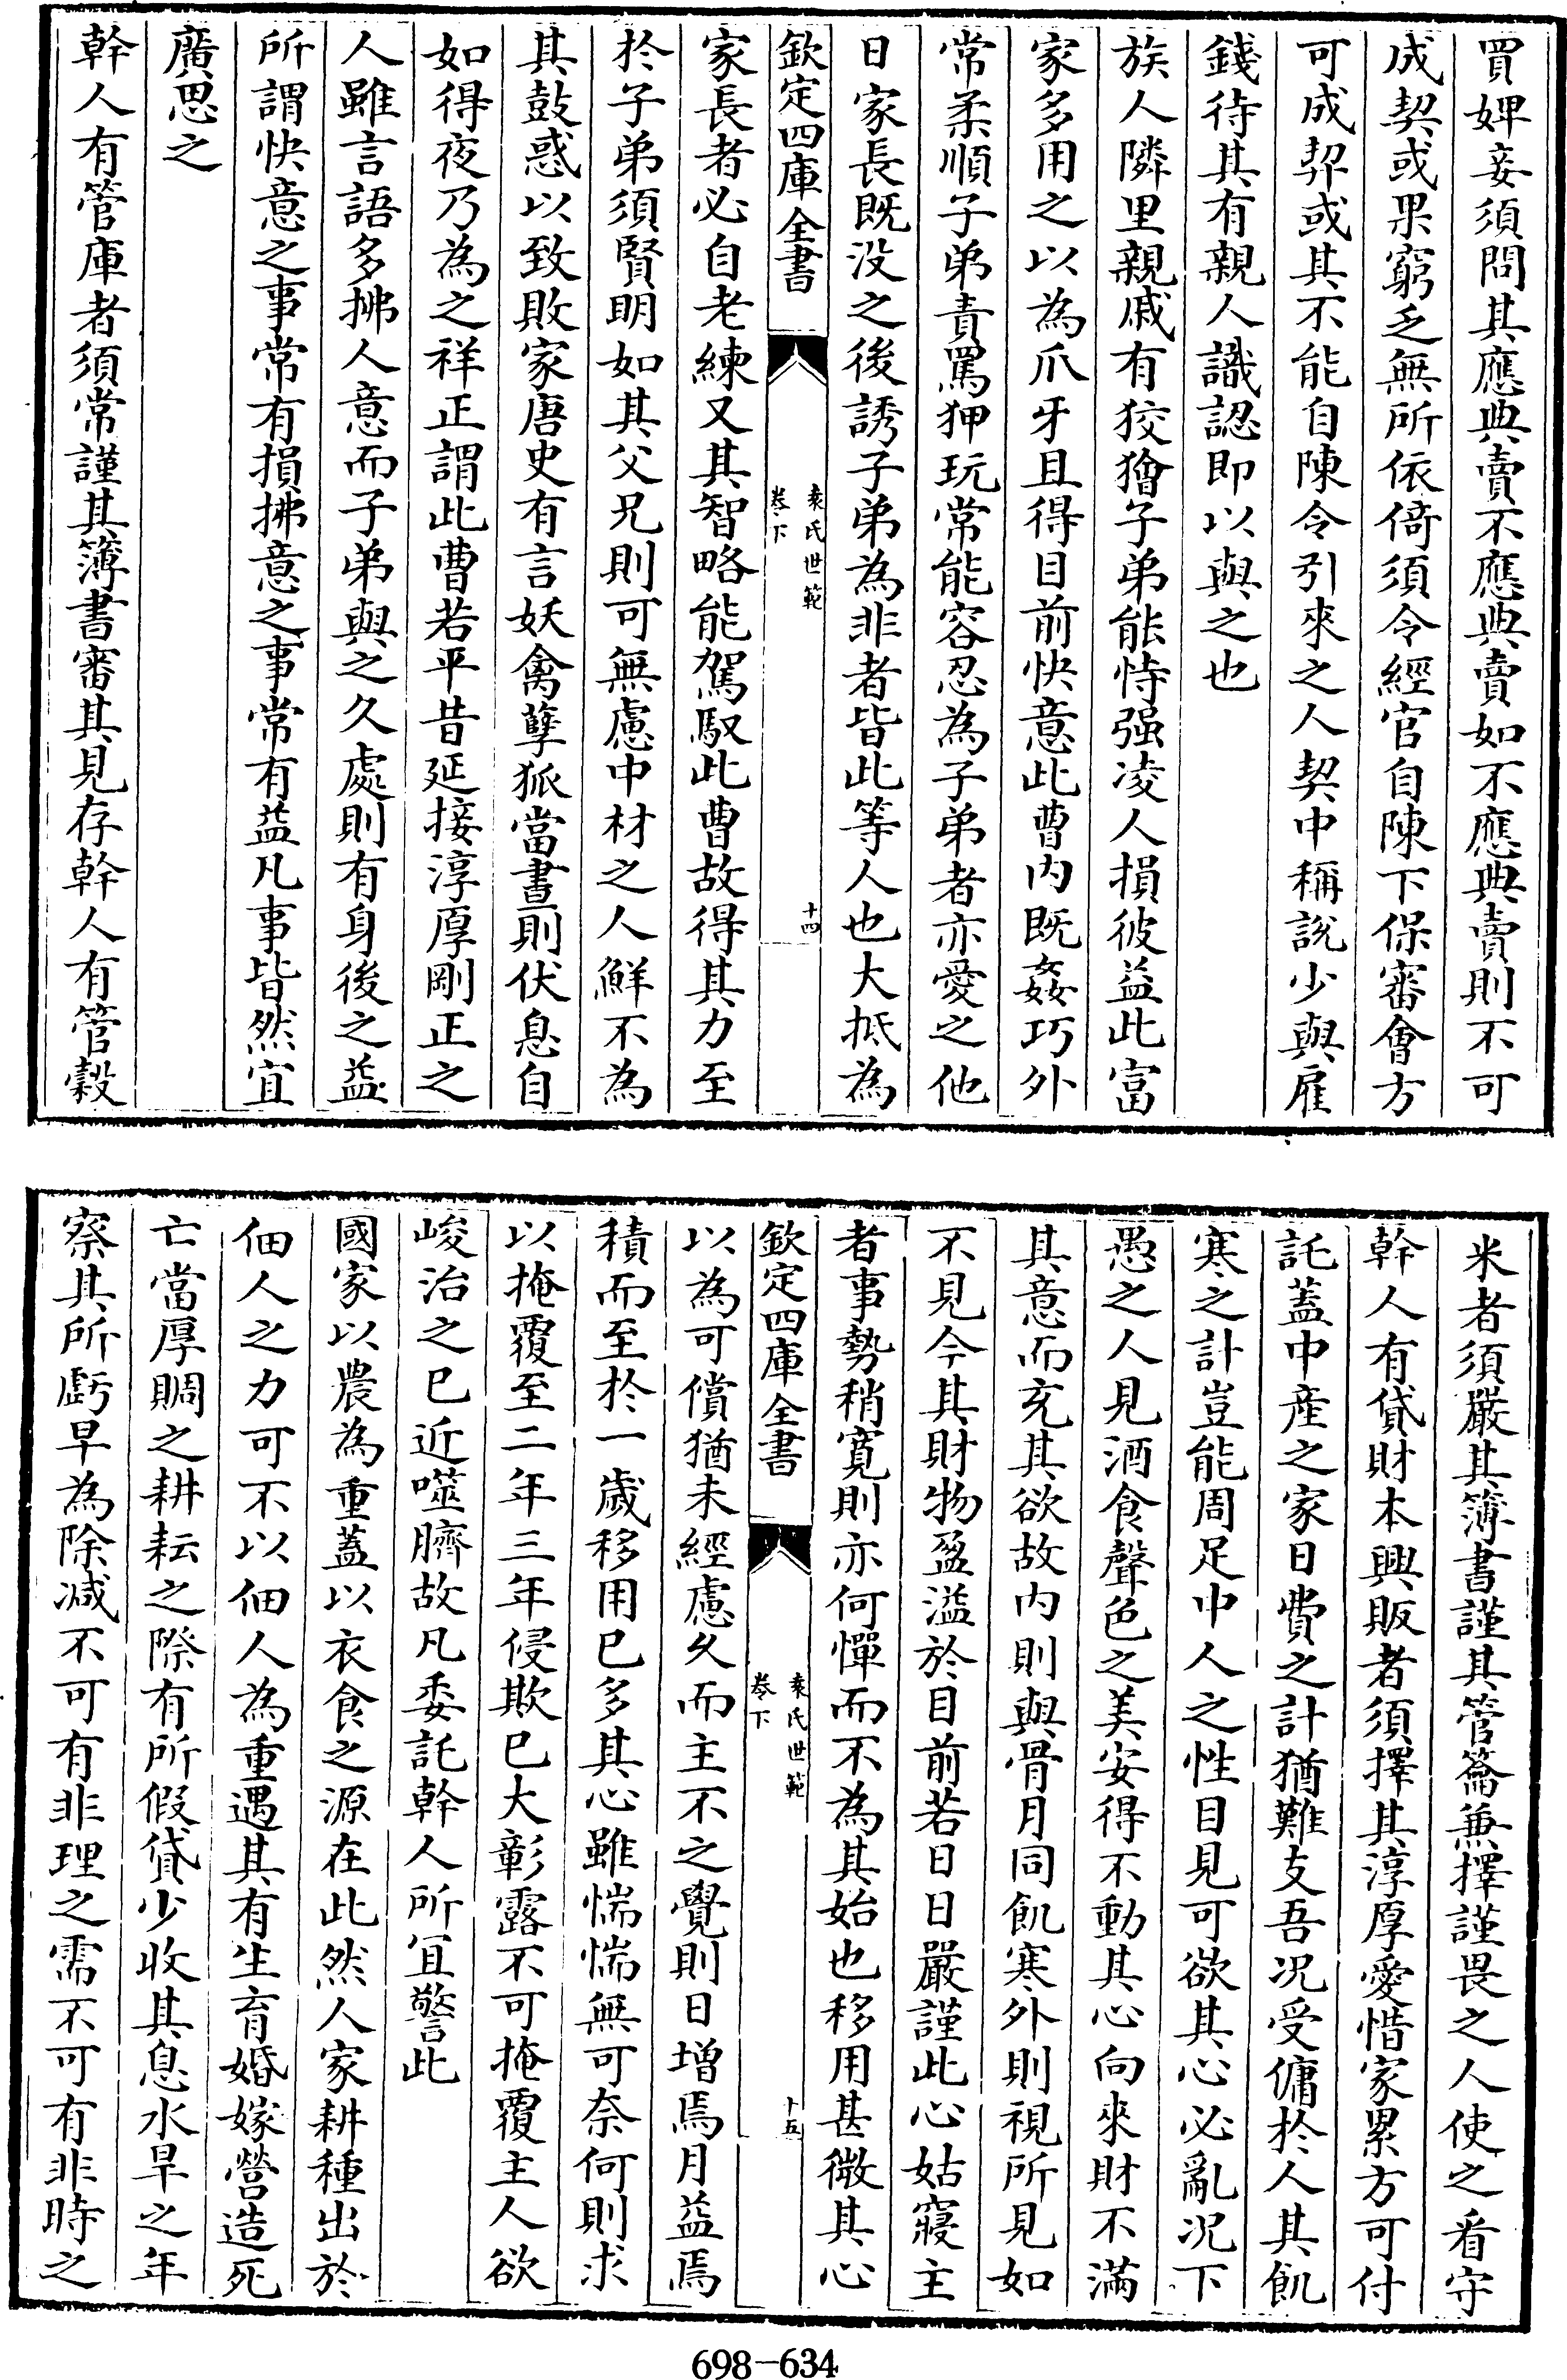 買婢妾須問其應典賣不應典賣如不應典賣則不可
成契或果窮乏無所依倚須令經官自陳下保審會方
可成契或其不能自陳令引來之人契中稱說少與雇
錢待其有親人識認即以與之也
族人隣里親戚有狡獪子弟能恃强凌人損彼益此富
家多用之以為爪牙且得目前快意此曹内既姦巧外
常柔順子弟責罵狎玩常能容忍為子弟者亦愛之他
日家長既没之後誘子弟為非者皆此等人也大抵為
欽定四庫全書
袁氏世範
卷下
十四
家長者必自老練又其智略能駕馭此曹故得其力至
於子弟須賢明如其父兄則可無慮中材之人鮮不為
其鼓惑以致敗家唐史有言妖禽孽狐當晝則伏息自
如得夜乃為之祥正謂此曹若平昔延接淳厚剛正之
人雖言語多拂人意而子弟與之久處則有身後之益
所謂快意之事常有損拂意之事常有益凡事皆然宜
廣思之
幹人有管庫者須常謹其簿書審其見存幹人有管穀
米者須嚴其簿書謹其管籥兼擇謹畏之人使之看守
幹人有貸財本興販者須擇其淳厚愛惜家累方可付
託蓋中産之家日費之計猶難支吾况受傭於人其飢
寒之計豈能周足中人之性目見可欲其心必亂况下
愚之人見酒食聲色之美安得不動其心向來財不滿
其意而充其欲故内則與骨月同飢寒外則視所見如
不見今其財物盈溢於目前若日日嚴謹此心姑寢主
者事勢稍寛則亦何憚而不為其始也移用甚微其心
欽定四庫全書
袁氏世範
卷下
十五
以為可償猶未經慮久而主不之覺則日增焉月益焉
積而至於一歲移用已多其心雖惴惴無可奈何則求
以掩覆至二年三年侵欺已大彰露不可掩覆主人欲
峻治之已近噬臍故凡委託幹人所宜警此
國家以農為重蓋以衣食之源在此然人家耕種出於
佃人之力可不以佃人為重遇其有生育婚嫁營造死
亡當厚賙之耕耘之際有所假貸少收其息水旱之年
察其所虧早為除减不可有非理之需不可有非時之
698-634